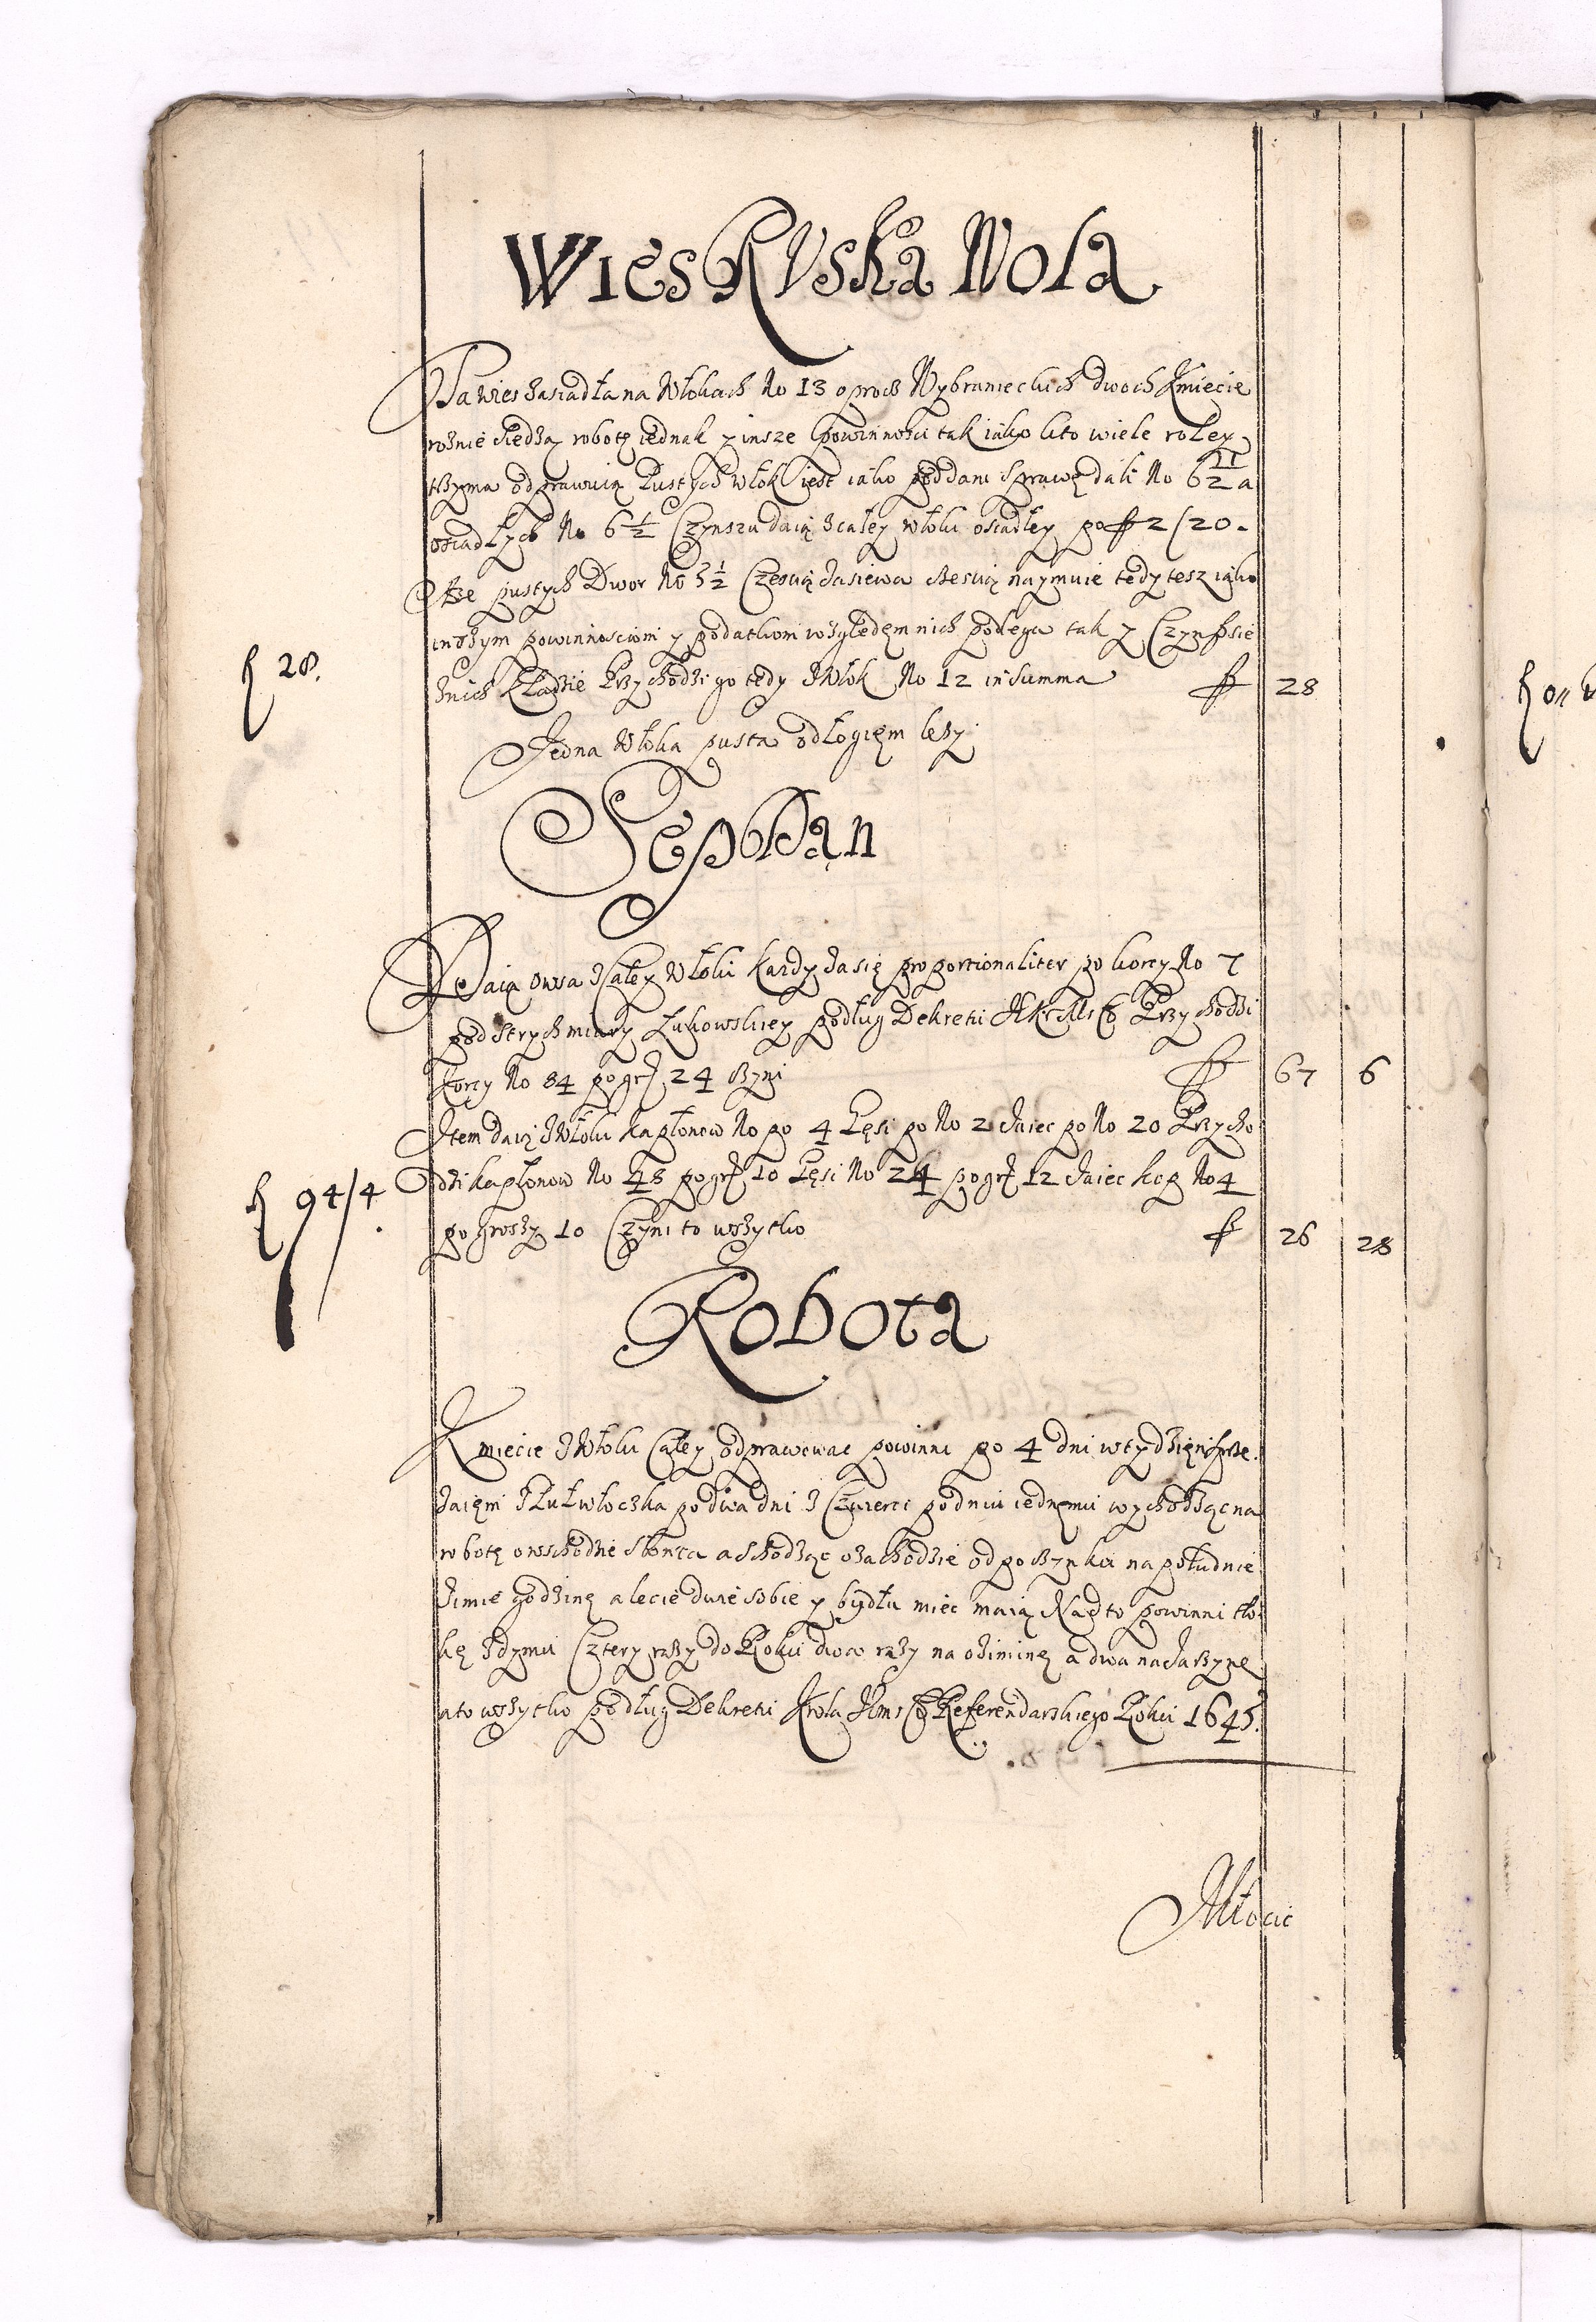 Wies Ruska Wola
Ta wies zasiadła na włokach No 13 oprocz Wybranieckich dwoch Kmiecie
rożnie siedzą robotę iednak y insze powinnosci tak iako kto wiele roley
trzyma odprawuią Pustych włok iest iako poddani sprawę dali No 6 1/2 a
osiadłych No 6 1/2 Czynszu daią z całey włoki osiadłey po ff 2/20.
Ze pustych Dwor No 5 1/2 Częscią zasiewa częscią naymuie tedy tesz iako
inszym powinnosciom y podatkom względem nich podlega tak y Czynsz sie
znich kładzie Przychodzi go tedy z Włok No 12 in Summa ff 28
f 28.
Jedna Włoka pusta odłogiem leży
Sepp Dan
Daią owsa z całey Włoki każdy zasię proportionaliter po korcy No 7
pod strych miary Łukowskiey podług Dekretu JKr Msci Przychodzi
Korcy No 84 po gr 24 czyni ff 67 6
Item daią z Włoki kapłonow No po 4 Gęsi po No 2 Jaiec po No 20 Przycho
dzi kapłonow No 48 po gr 10 Gęsi No 24 po gr 12 Jaiec kop No 4
f 94/4.
po groszy 10 Czyni to wszytko ff 26 28
Robota
Kmiecie z Włoki Całey odprawować powinni po 4 dni w tydzien sprzę
żaięm z Puł włoczka po dwa dni z Czwerci po dniu iednemu wychodząc na
robotę o wschodzie słonca a schodząc o zachodzie odpoczynku na południe
zimie godzinę a lecie dwie sobie y bydłu miec maią Nad to powinni tło
kę z dymu Cztery razy do Roku dwa razy na oziminę a dwa na Jarzynę
a to wszytko podług Dekretu Krola Jmsci Referendarskiego Roku 1645.
Młocic